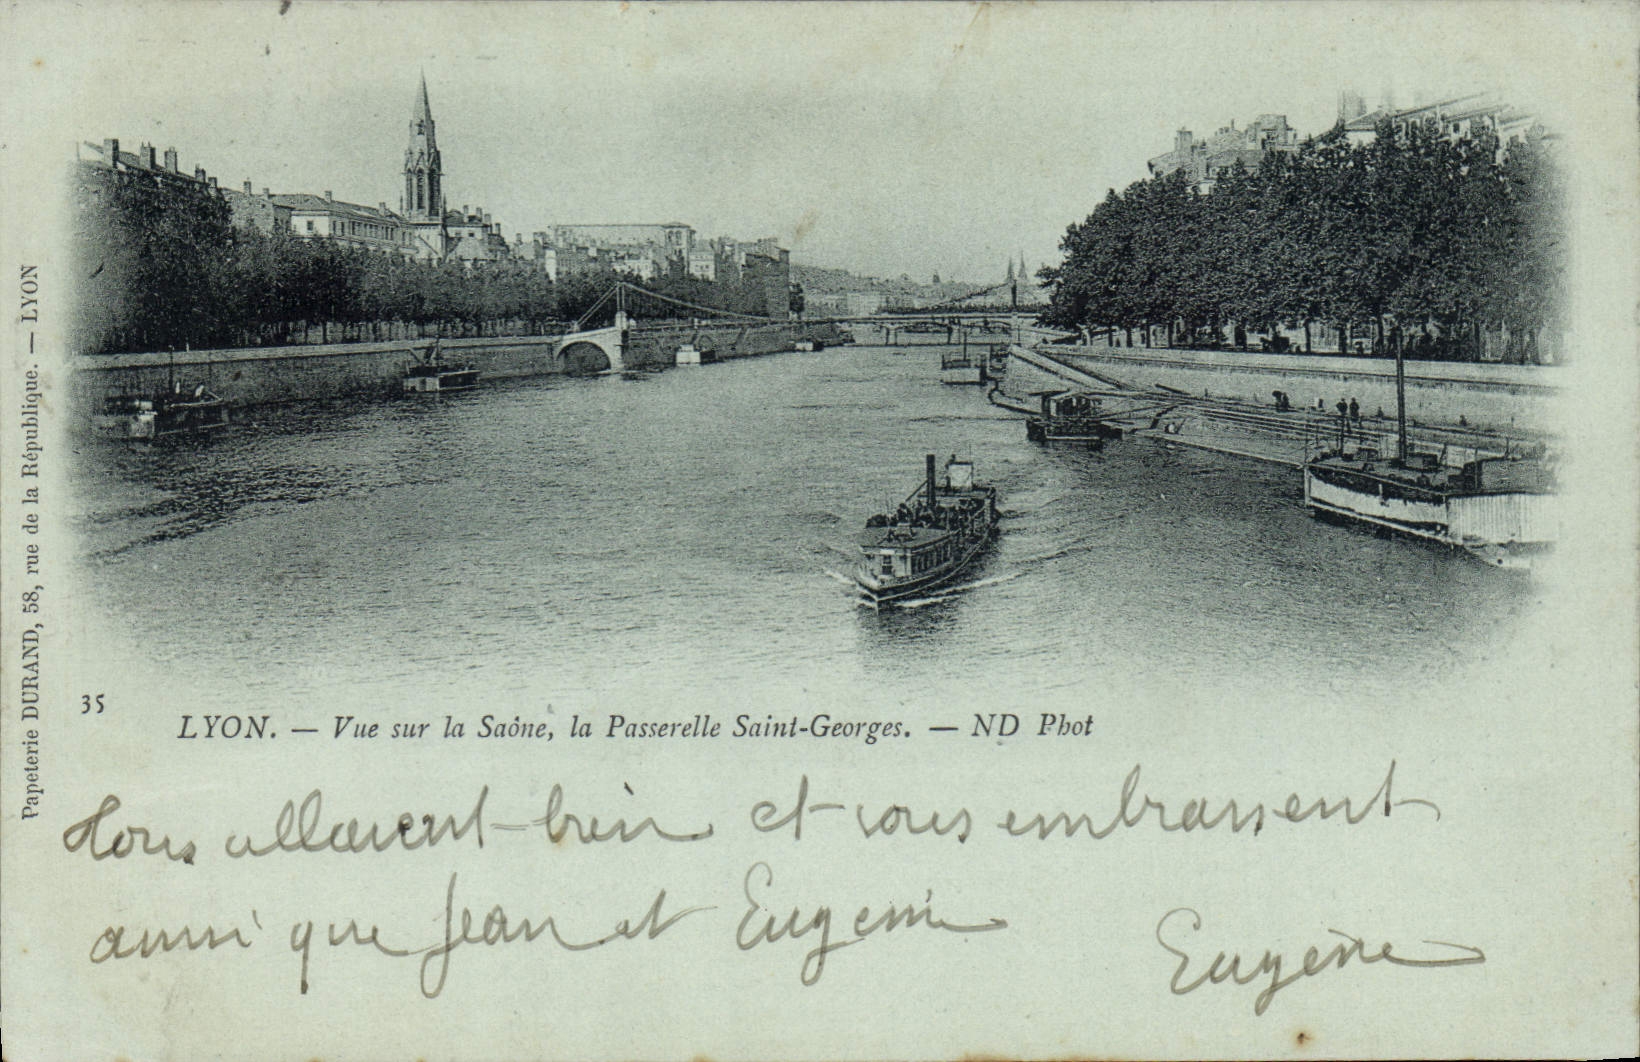 Papeterie DURAND, 58, rue de la République. — LYON
35
LYON. — Vue sur la Saône, la Passerelle Saint-Georges. — ND Phot
Nous allaient bien et vous embrassent
aussi que Jean et Eugenie
Eugénie